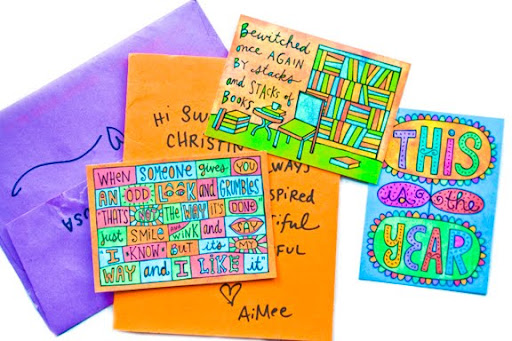 Bewitched
once AGAIN
BY stacks
and STACKS of
BOOKS
THIS
is the
YEAR
Hi Sw
CHRISTIN
WAYS
spired
tiful
FUL
AiMee
WHEN SOMEONE gives YOU
AN ODD LOOK and GRUMBLES
"THATS NOT THE WAY it's DONE
just SMILE and WINK and SAY
"I KNOW BUT it's MY
WAY and I LIKE it"
USA